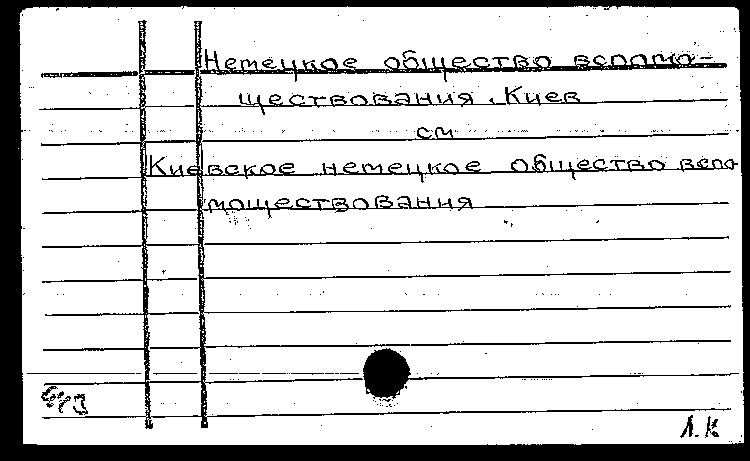 Немецкое общество вспомо-
ществования. Киев
см
Киевское немецкое общество вспо-
моществования
Л.К